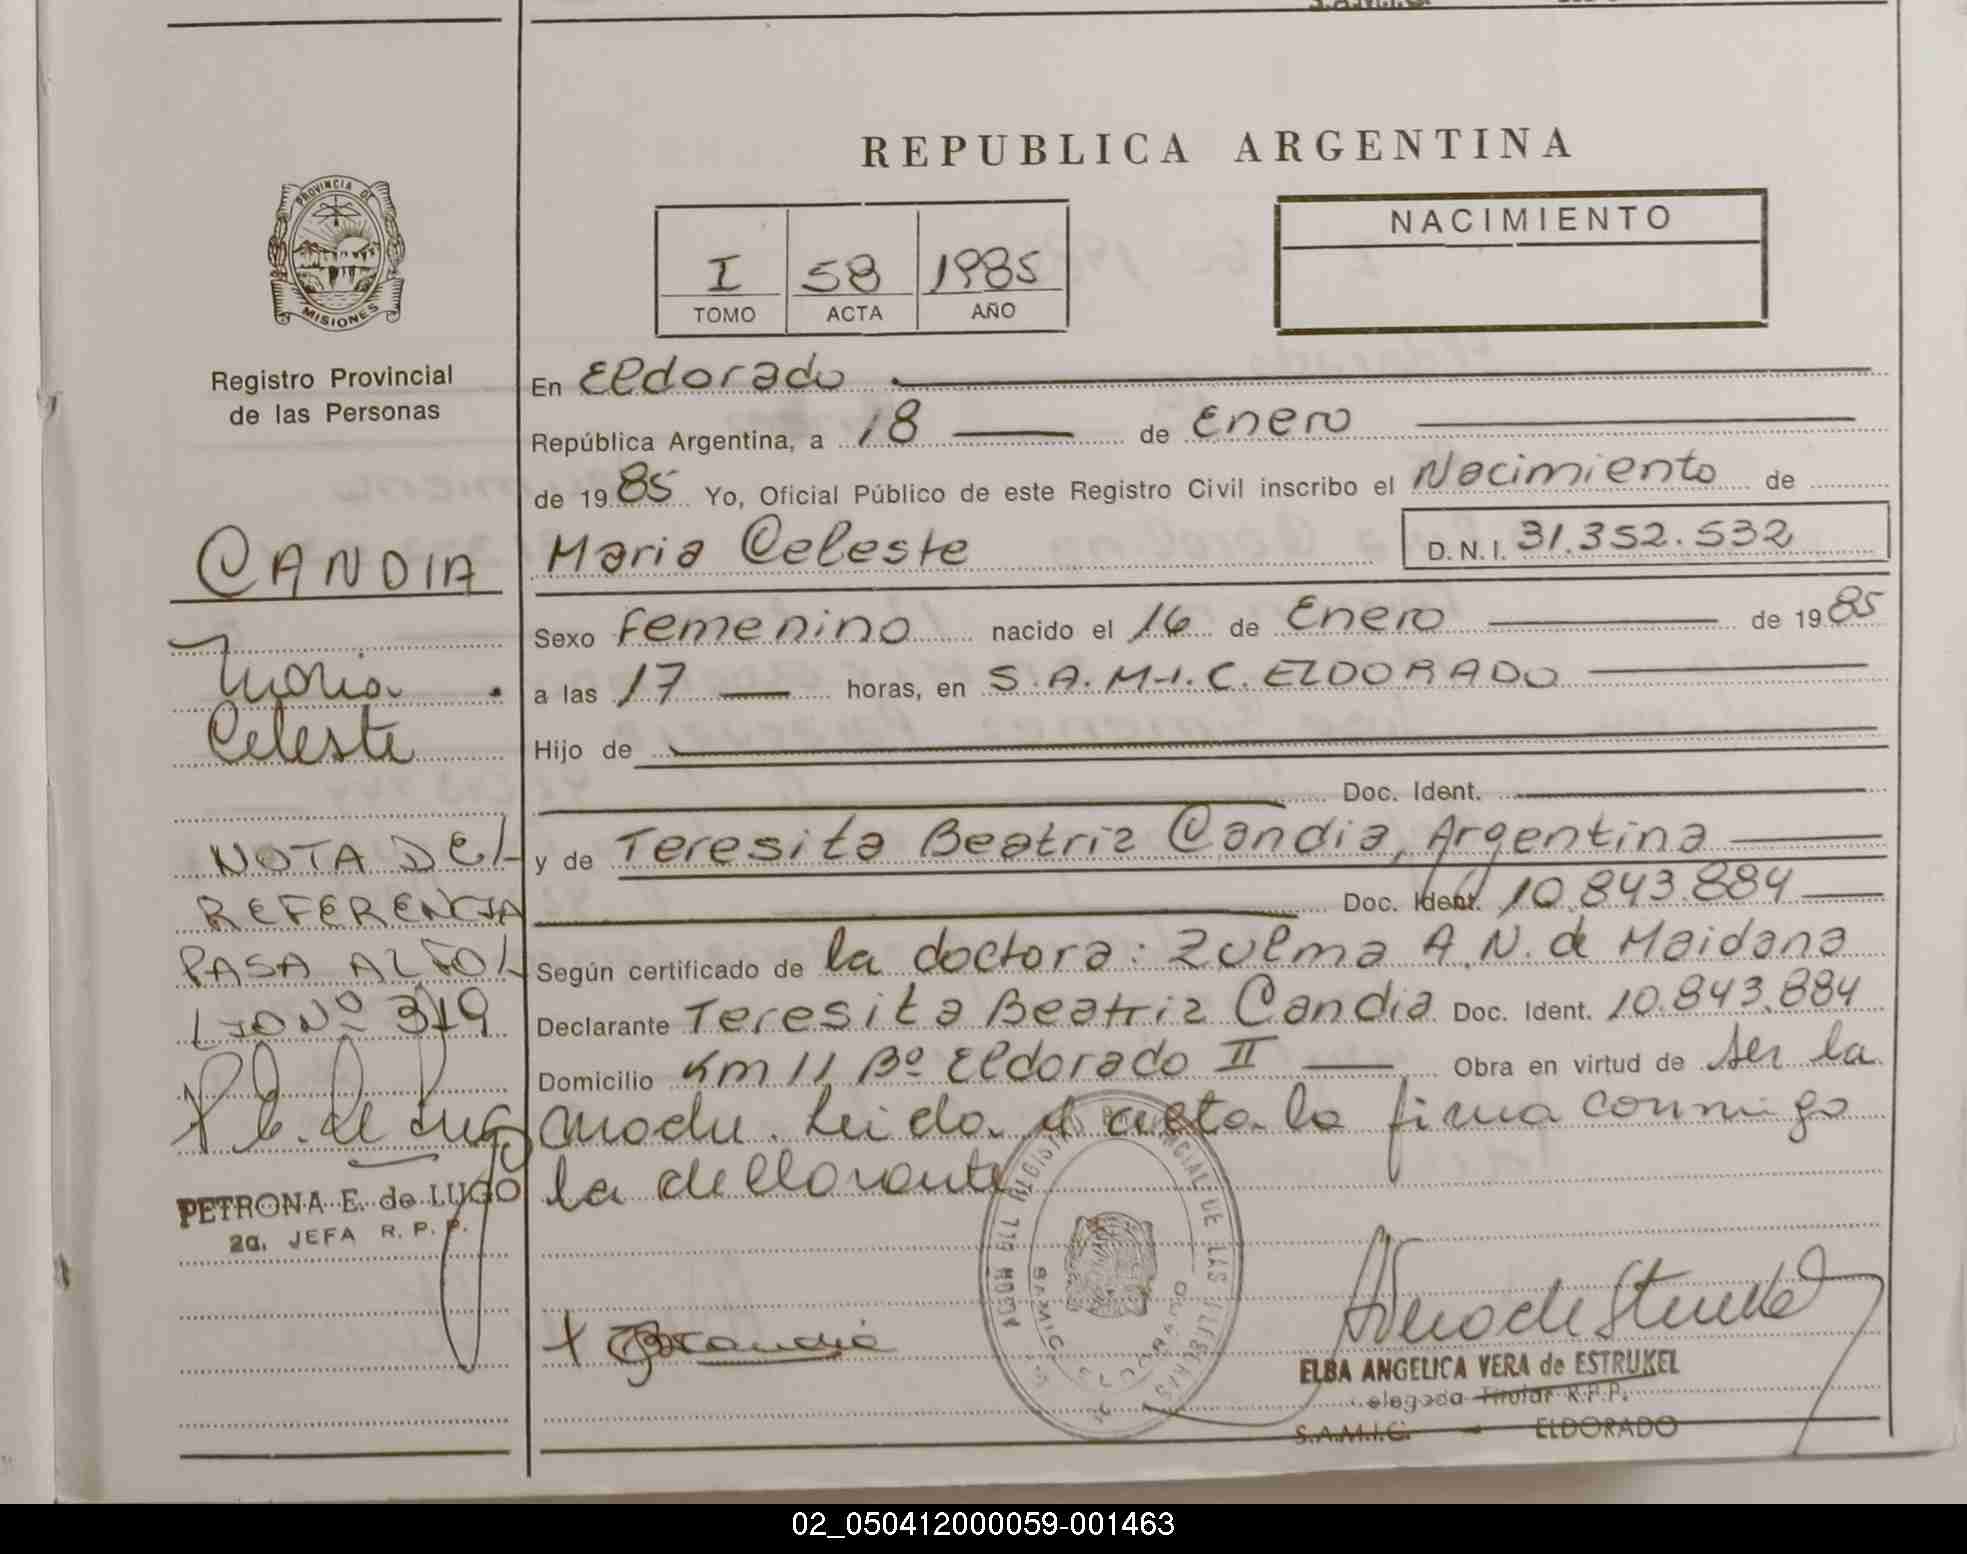 REPUBLICA ARGENTINA
PROVINCIA DE
MISIONES
Registro Provincial
de las Personas
I 58 1985
TOMO ACTA AÑO
NACIMIENTO
En Eldorado
República Argentina, a 18 de Enero
de 1985 Yo, Oficial Público de este Registro Civil inscribo el Nacimiento de
Maria Celeste D.N.I. 31.352.532
Sexo femenino nacido el 16 de Enero de 1985
a las 17 horas, en S.A.M.I.C. ELDORADO
Hijo de
Doc. Ident.
y de Teresita Beatriz Candia, Argentina
Doc. Ident. 10.843.884
Según certificado de la doctora: Zulma A.N. de Maidana
Declarante Teresita Beatriz Candia Doc. Ident. 10.843.884
Domicilio Km 11 Bº Eldorado II Obra en virtud de ser la
madre. Leida el acta la firma conmigo
la declarante
CANDIA
Maria
Celeste
NOTA DE
REFERENCIA
PASA AL FOL
IO Nº 319
P. E. de Lugo
PETRONA E. de LUGO
2a. JEFA R.P.P.
ELBA ANGELICA VERA de ESTRUKEL
elegada Titular R.P.P.
S.A.M.I.C. - ELDORADO
02_050412000059-001463